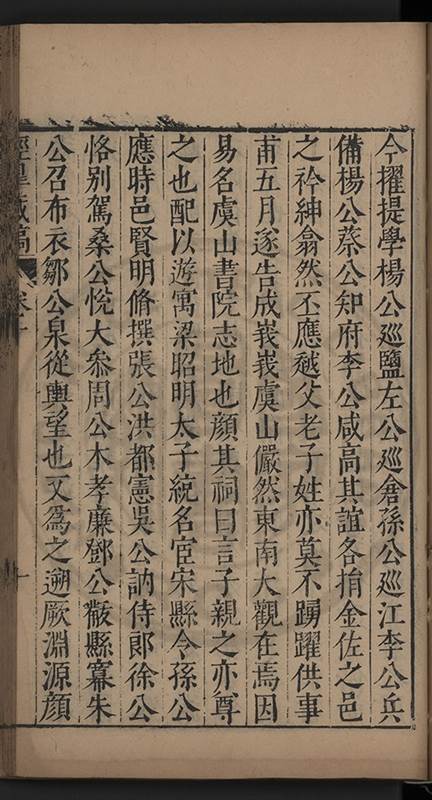 今擢提學楊公巡鹽左公巡倉孫公巡江李公兵
備楊公蔡公知府李公咸高其誼各捐金佐之邑
之衿紳翕然丕應越父老子姓亦莫不踴躍供事
甫五月遂告成峩峩虞山儼然東南大觀在焉因
易名虞山書院志地也顏其祠曰言子親之亦尊
之也配以遊寓梁昭明太子統名宦宋縣令孫公
應時邑賢明脩撰張公洪都憲吳公訥侍郎徐公
恪别駕桑公悅大叅周公木孝廉鄧公韍縣寞朱
公召布衣鄒公泉從輿望也又爲之遡厥淵源顏
經臯藏稿 卷十